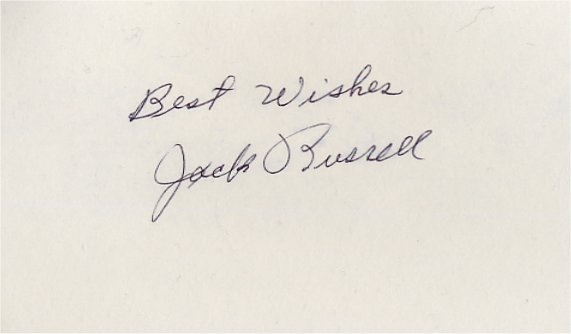 Best Wishes
Jack Russell